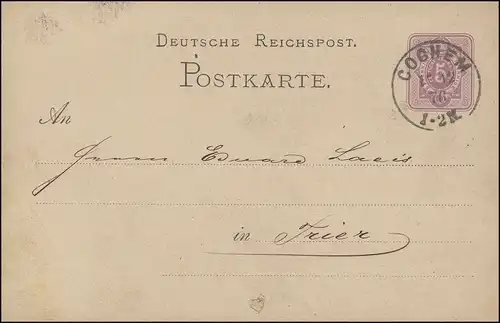 DEUTSCHE REICHSPOST.
POSTKARTE.
COCHEM
76
1-2N.
5
An
Herrn Eduard Laeis
in Trier